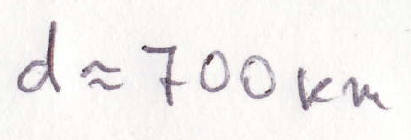 d ≈ 700 km